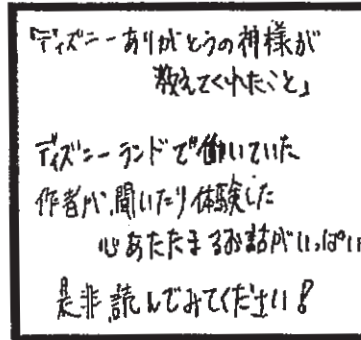 「ディズニーありがとうの神様が
教えてくれたこと」
ディズニーランドで働いていた
作者が、聞いたり体験した
心あたたまるお話がいっぱい
是非、読んでみてください！